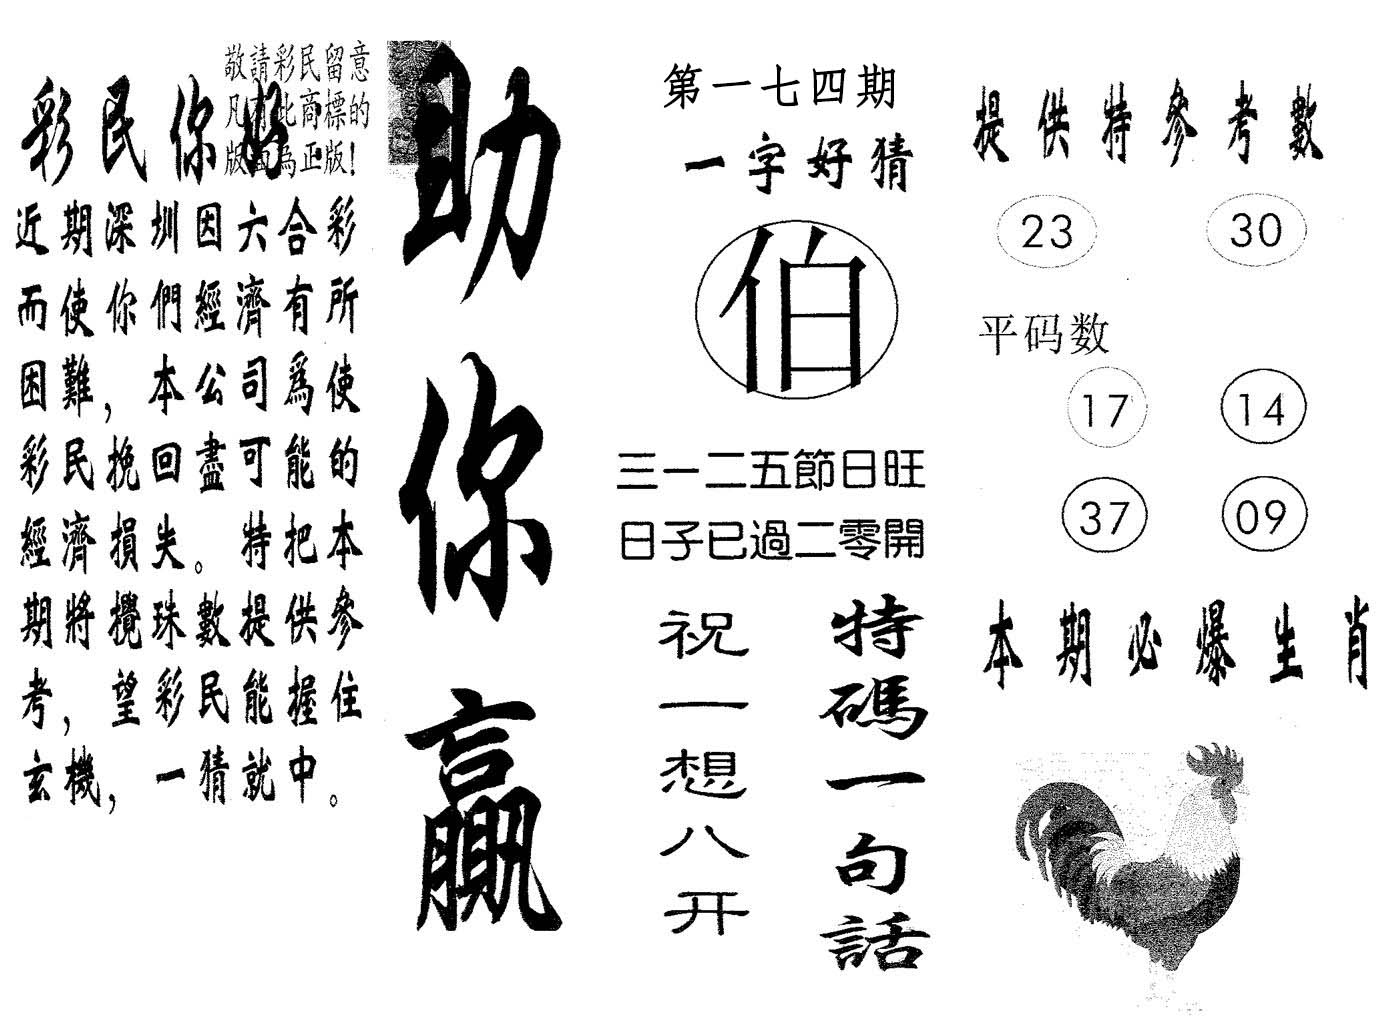 敬請彩民留意
凡有此商標的
版面為正版!
彩民你好
近期深圳因六合彩
而使你們經濟有所
困難，本公司爲使
彩民挽回盡可能的
經濟損失。特把本
期將攪珠數提供參
考，望彩民能握住
玄機，一猜就中。
助你贏
第一七四期
一字好猜
伯
三一二五節日旺
日子已過二零開
特碼一句話
祝一想八开
提供特參考數
23 30
平码数
17 14
37 09
本期必爆生肖